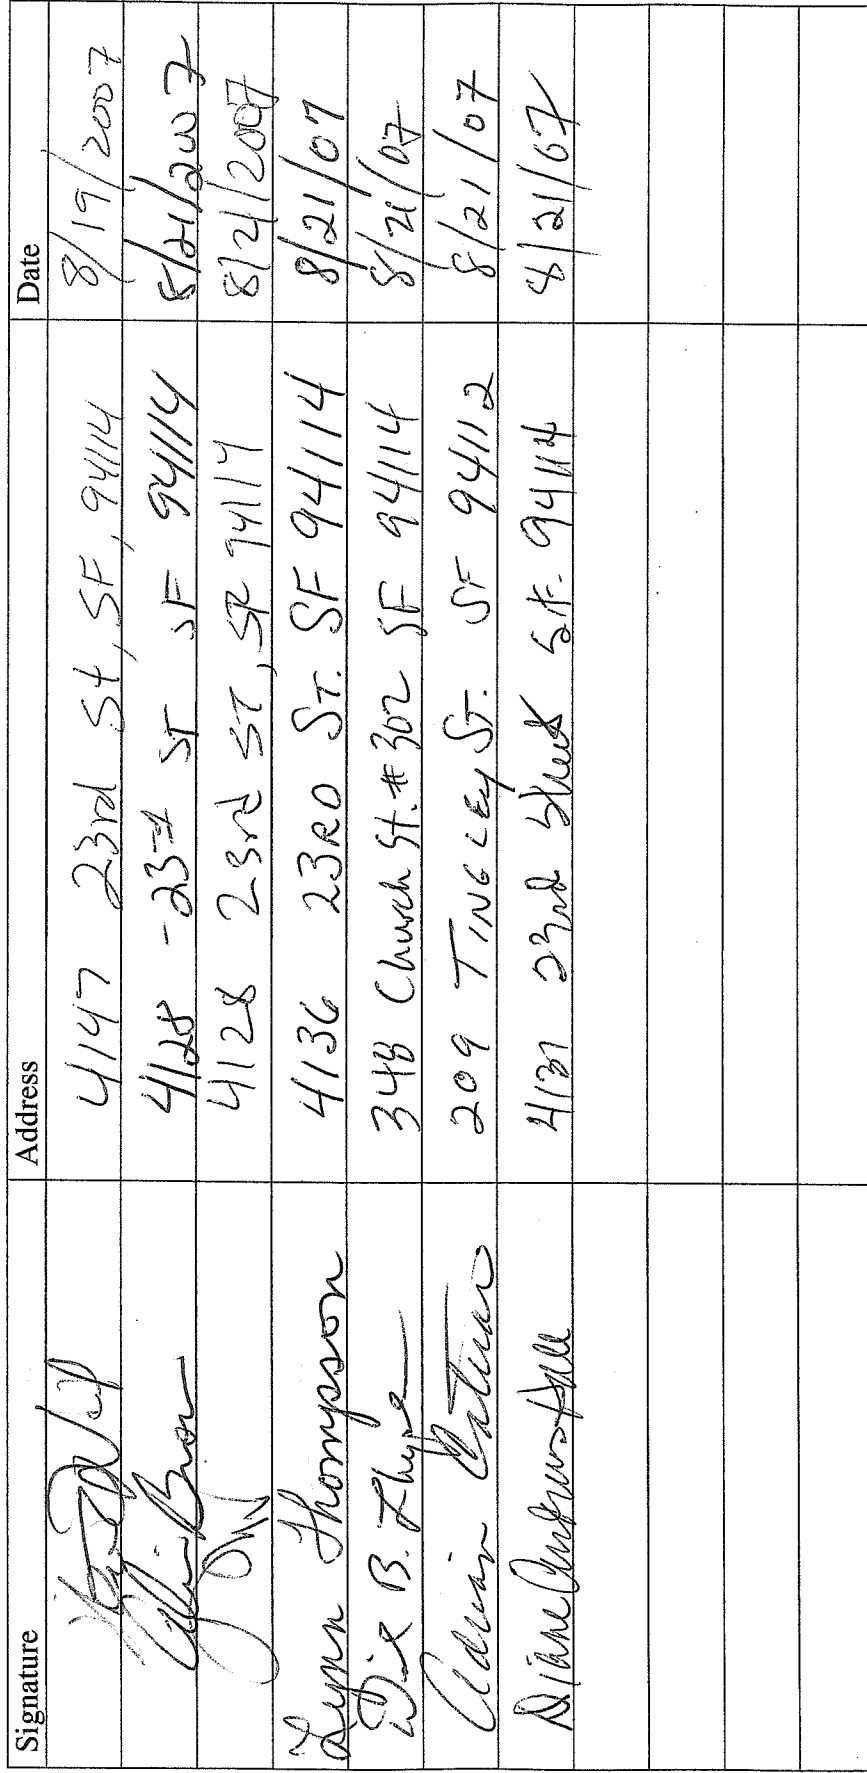 Signature Address Date
4147 23rd St, SF, 94114 8/19/2007
4128 - 23rd ST SF 94114 8/21/2007
4128 23rd ST, SF 94114 8/21/2007
Lynn Thompson 4136 23RD ST. SF 94114 8/21/07
B. 348 Church St. #302 SF 94114 8/21/07
Adrian 209 TINGLEY ST. SF 94112 8/21/07
Diane 4131 23rd Street S.F. 94114 8/21/07